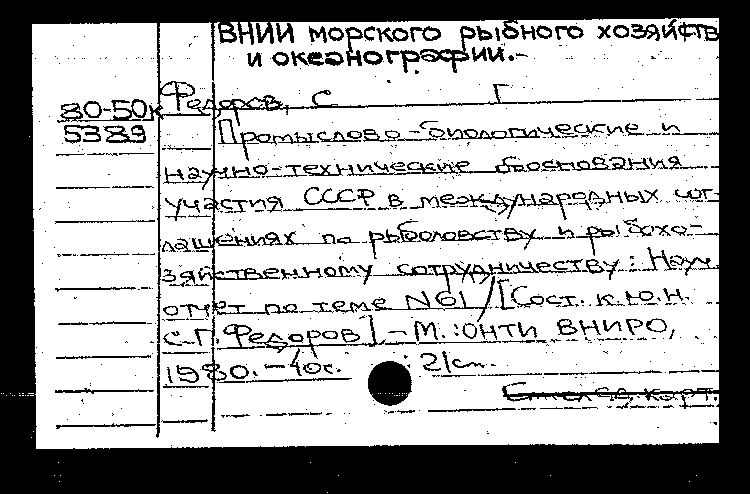 ВНИИ морского рыбного хозяйств
и океанографии.-
Федоров, С Г
80-50к
5389
Промыслово-биологические и
научно-технические обоснования
участия СССР в международных сог-
лашениях по рыболовству и рыбохо-
зяйственному сотрудничеству: Науч.
отчет по теме N61 / [Сост. к.ю.н.
С.Г. Федоров] - М.: ОНТИ ВНИРО,
1980. - 40с. : 21см.
См. след. карт.